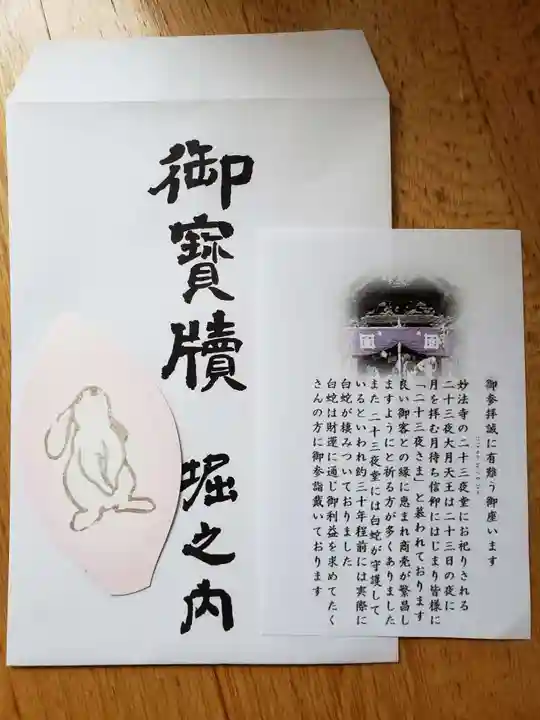 御寳牘 堀之内
御参拝誠に有難う御座います
妙法寺の二十三夜堂にお祀りされる
二十三夜大月天王は二十三日の夜に
月を拝む月待ち信仰にはじまり皆様に
「二十三夜さま」と慕われております
良い御客との縁に恵まれ商売が繁昌し
ますようにと祈る方が多くありました
また 二十三夜堂には白蛇が守護して
いるといわれ約三十年程前には実際に
白蛇が棲みついておりました
白蛇は財運に通じ御利益を求めてたく
さんの方に御参詣戴いております